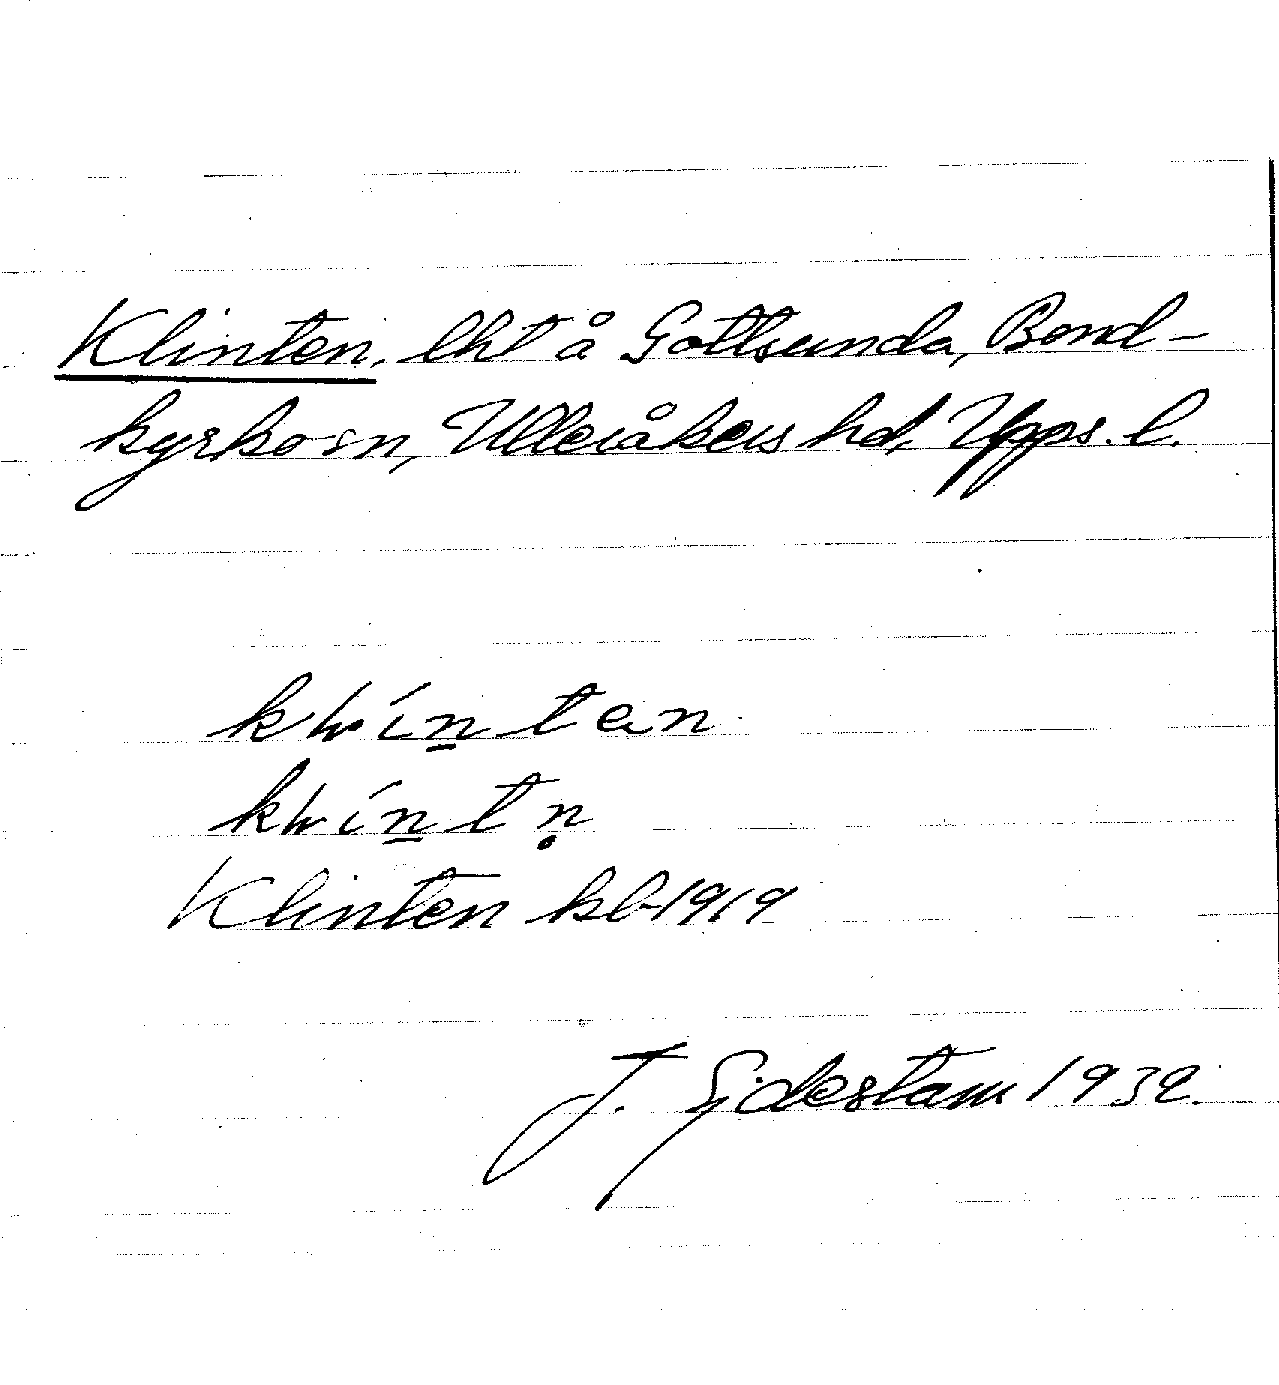 Klinten, lht å Gottsunda, Bond-
kyrko sn, Ulleråkers hd, Upps. l.
klin̠ten
klín̠tṇ
Klinten kb 1919
J. Gidestam 1932.